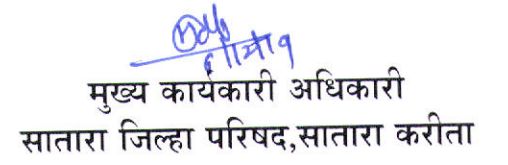 मुख्य कार्यकारी अधिकारी
सातारा जिल्हा परिषद,सातारा करीता